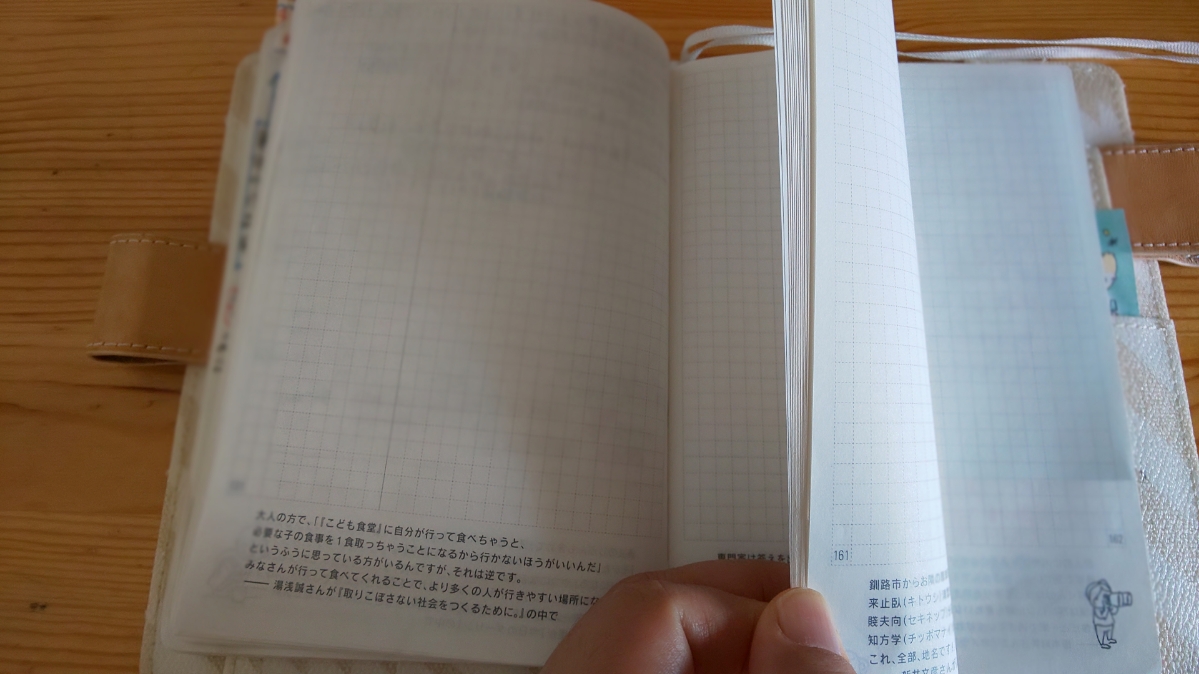 大人の方で、「『こども食堂』に自分が行って食べちゃうと、
必要な子の食事を1食取っちゃうことになるから行かないほうがいいんだ」
というふうに思っている方がいるんですが、それは逆です。
みなさんが行って食べてくれることで、より多くの人が行きやすい場所にな
—— 湯浅誠さんが『取りこぼさない社会をつくるために。』の中で
専門家は答えを
161
釧路市からお
来止臥(キトウシ
賤夫向(セキネップ
知方学(チッポマナイ
これ、全部、地名です
162